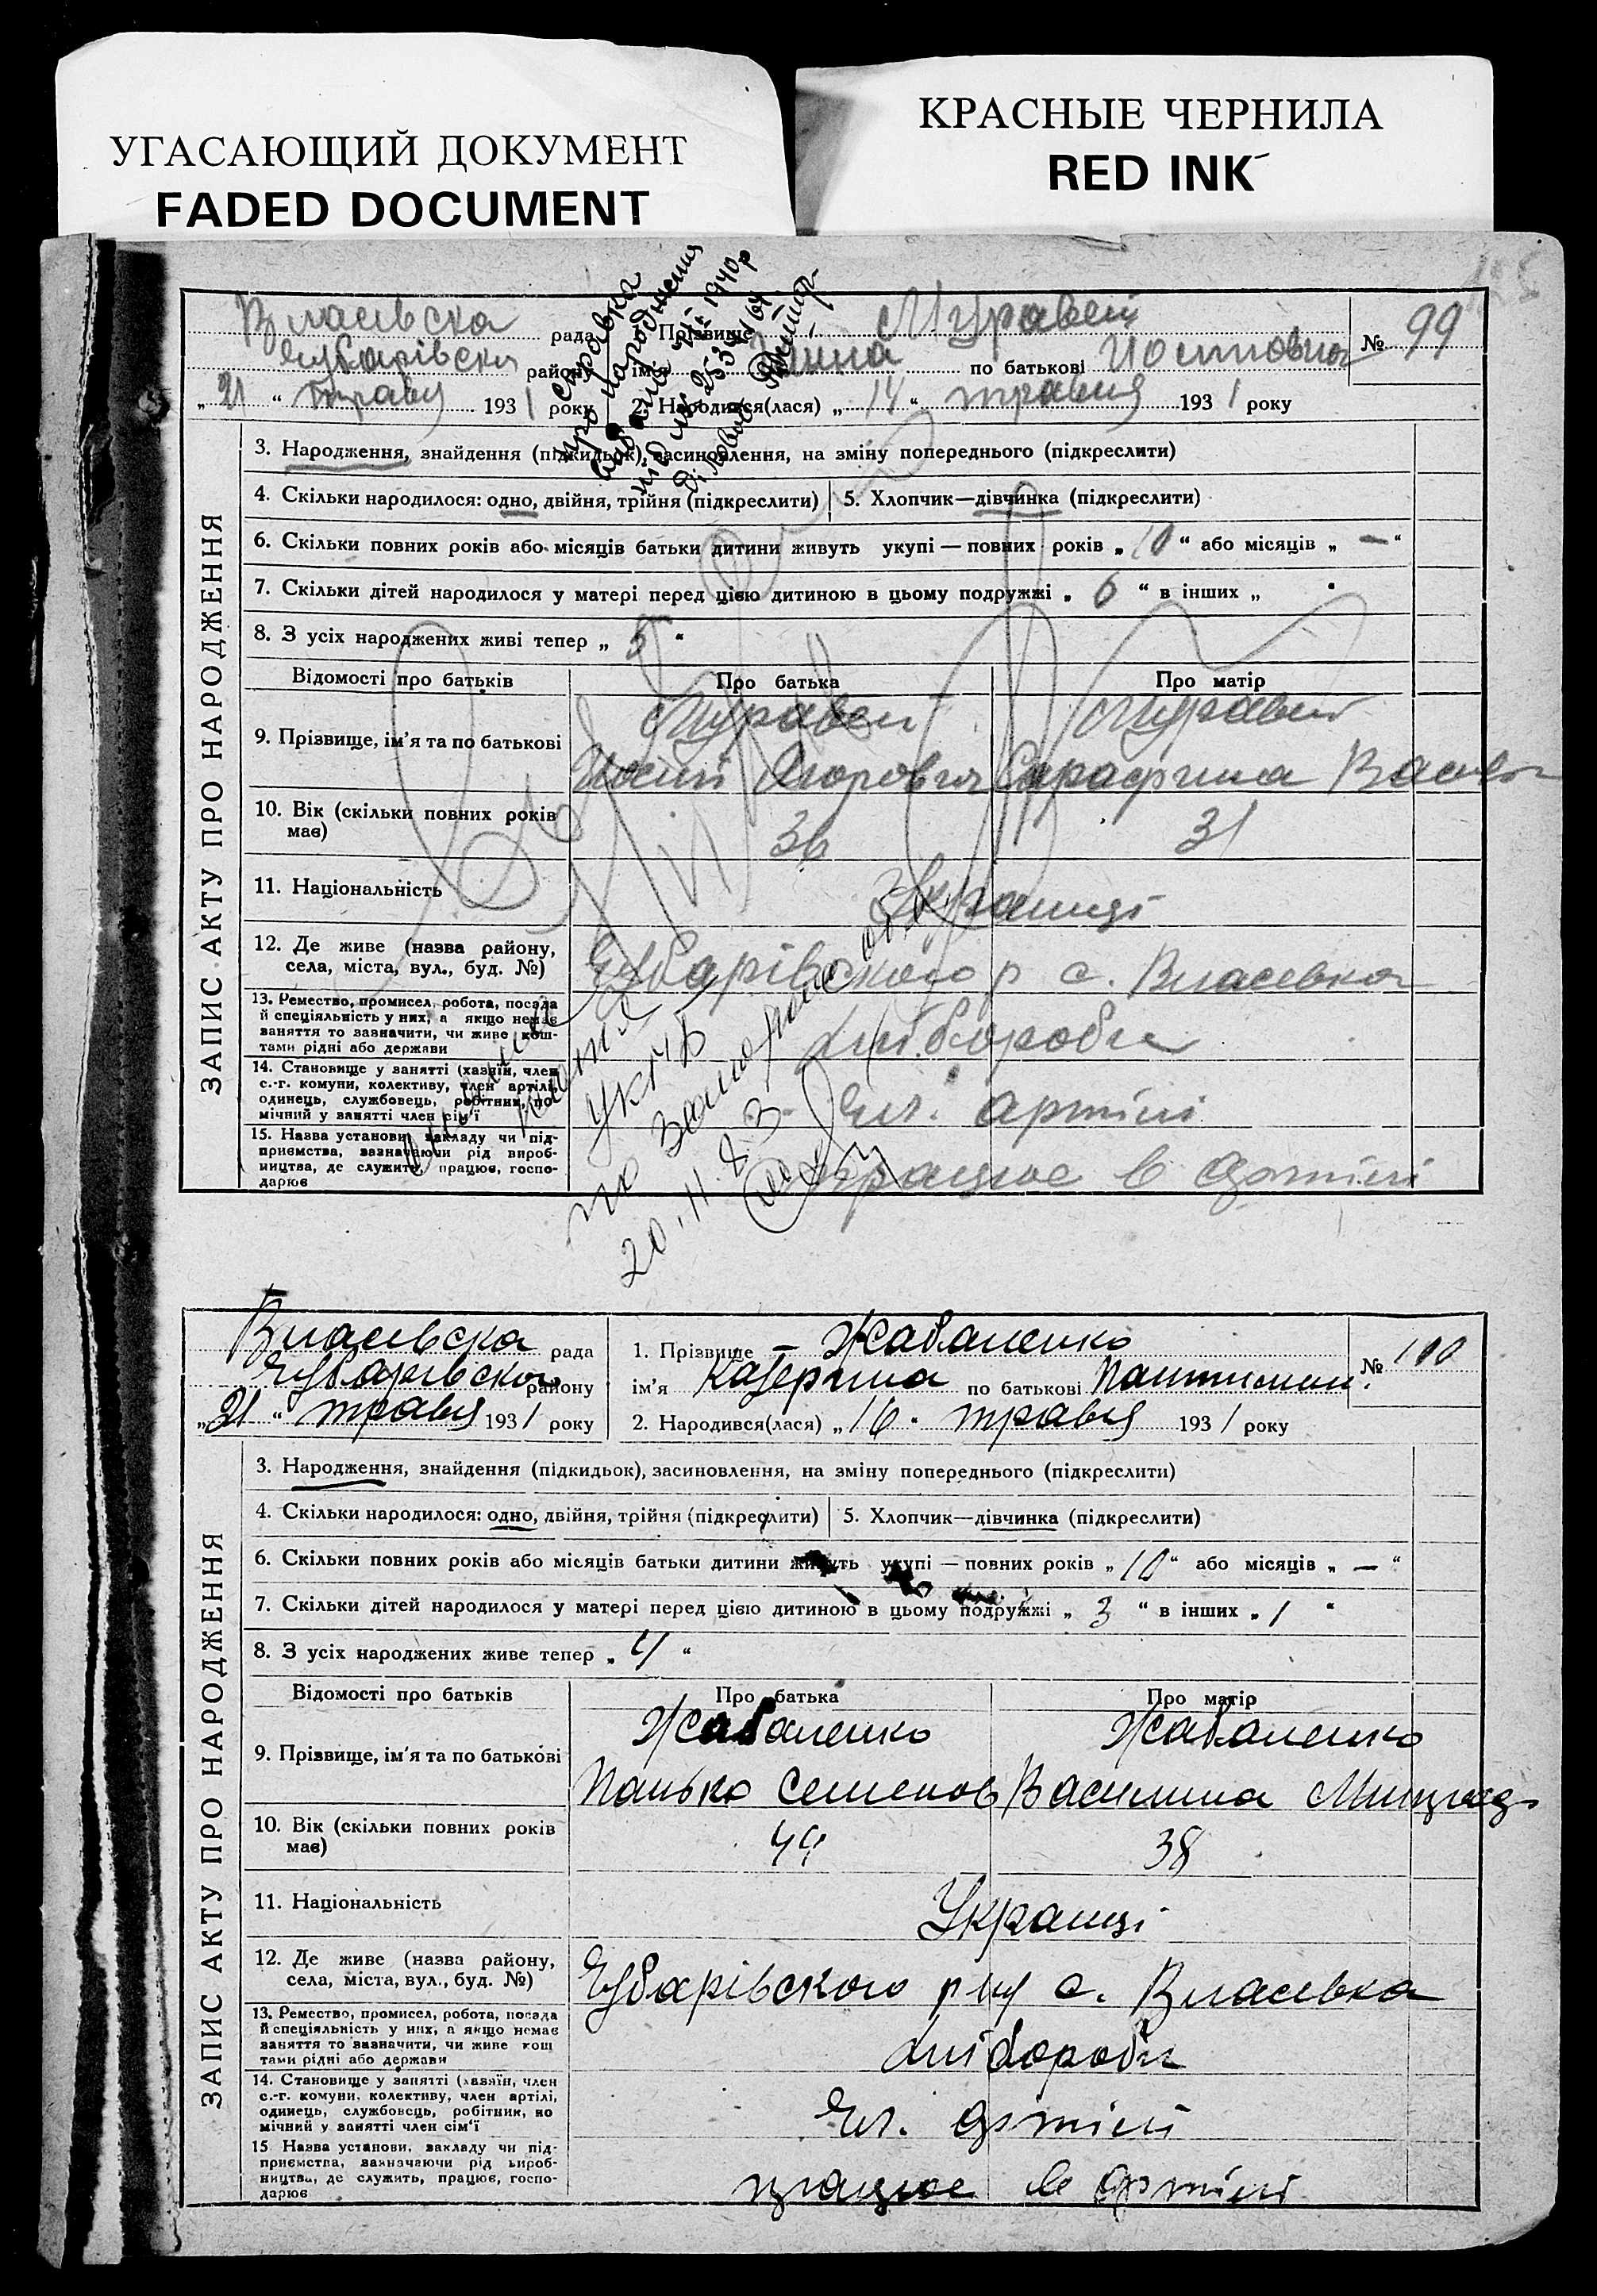 УГАСАЮЩИЙ ДОКУМЕНТ
FADED DOCUMENT
КРАСНЫЕ ЧЕРНИЛА
RED INK
Власівська рада
Чубарівська району
„ 21 “ травня 1931 року
1. Прізвище Муравей
ім'я по батькові № 99
2. Народився(лася) „ 14 “ травня 1931 року
Справка
про народження
видана 1940 р
ЗАПИС АКТУ ПРО НАРОДЖЕННЯ
3. Народження, знайдення (підкидьок), засиновлення, на зміну попереднього (підкреслити)
4. Скільки народилося: одно, двійня, трійня (підкреслити)
5. Хлопчик—дівчинка (підкреслити)
6. Скільки повних років або місяців батьки дитини живуть укупі — повних років „ 10 “ або місяців „ — “
7. Скільки дітей народилося у матері перед цією дитиною в цьому подружжі „ 6 “ в інших „ “
8. З усіх народжених живі тепер „ 5 “
Відомості про батьків
Про батька
Про матір
9. Прізвище, ім'я та по батькові
Муравей
Муравей
10. Вік (скільки повних років має)
36
31
11. Національність
Українці
12. Де живе (назва району, села, міста, вул., буд. №)
Чубарівського р с. Власівка
13. Ремество, промисел, робота, посада
й спеціяльність у них, а якщо немає
заняття то зазначити, чи живе кош-
тами рідні або держави
Хлібороби
14. Становище у занятті (хазяїн, член
с.-г. комуни, колективу, член артілі,
одинець, службовець, робітник, по-
мічний у занятті член сім'ї
Чл. артілі
15. Назва установи, закладу чи під-
приємства, зазначаючи рід вироб-
ництва, де служить, працює, госпо-
дарює
працює в артілі
20.11.83
Власівська рада
Чубарівської району
„ 21 “ травня 1931 року
1. Прізвище – Жабаленко
ім'я Катерина по батькові № 100
2. Народився(лася) „ 16 “ травня 1931 року
ЗАПИС АКТУ ПРО НАРОДЖЕННЯ
3. Народження, знайдення (підкидьок), засиновлення, на зміну попереднього (підкреслити)
4. Скільки народилося: одно, двійня, трійня (підкреслити)
5. Хлопчик—дівчинка (підкреслити)
6. Скільки повних років або місяців батьки дитини живуть укупі — повних років „ 10 “ або місяців „ — “
7. Скільки дітей народилося у матері перед цією дитиною в цьому подружжі „ 3 “ в інших „ 1 “
8. З усіх народжених живе тепер „ 4 “
Відомості про батьків
Про батька
Про матір
9. Прізвище, ім'я та по батькові
Жабаленко
Панько Семенов
Жабаленко
Василина
10. Вік (скільки повних років має)
44
38
11. Національність
Українці
12. Де живе (назва району, села, міста, вул., буд. №)
Чубарівського р-ну с. Власівка
13. Ремество, промисел, робота, посада
й спеціяльність у них, а якщо немає
заняття то зазначити, чи живе кош
тами рідні або держави
Хлібороби
14. Становище у занятті (хазяїн, член
с.-г. комуни, колективу, член артілі,
одинець, службовець, робітник, по
мічний у занятті член сім'ї
Чл. артілі
15 Назва установи, закладу чи під-
приємства, зазначаючи рід вироб-
ництва, де служить, працює, госпо-
дарює
працює в артілі